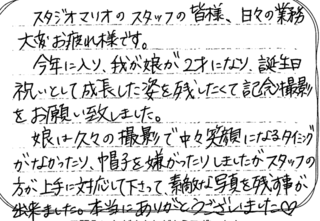 スタジオマリオのスタッフの皆様、日々の業務
大変お疲れ様です。
今年に入り、我が娘が2才になり、誕生日
祝いとして成長した姿を残したくて記念撮影
をお願い致しました。
娘は久々の撮影で中々笑顔になるタイミング
がなかったり、帽子を嫌がったりしましたがスタッフの
方が上手に対応して下さって、素敵な写真を残す事が
出来ました。本当にありがとうございました♡